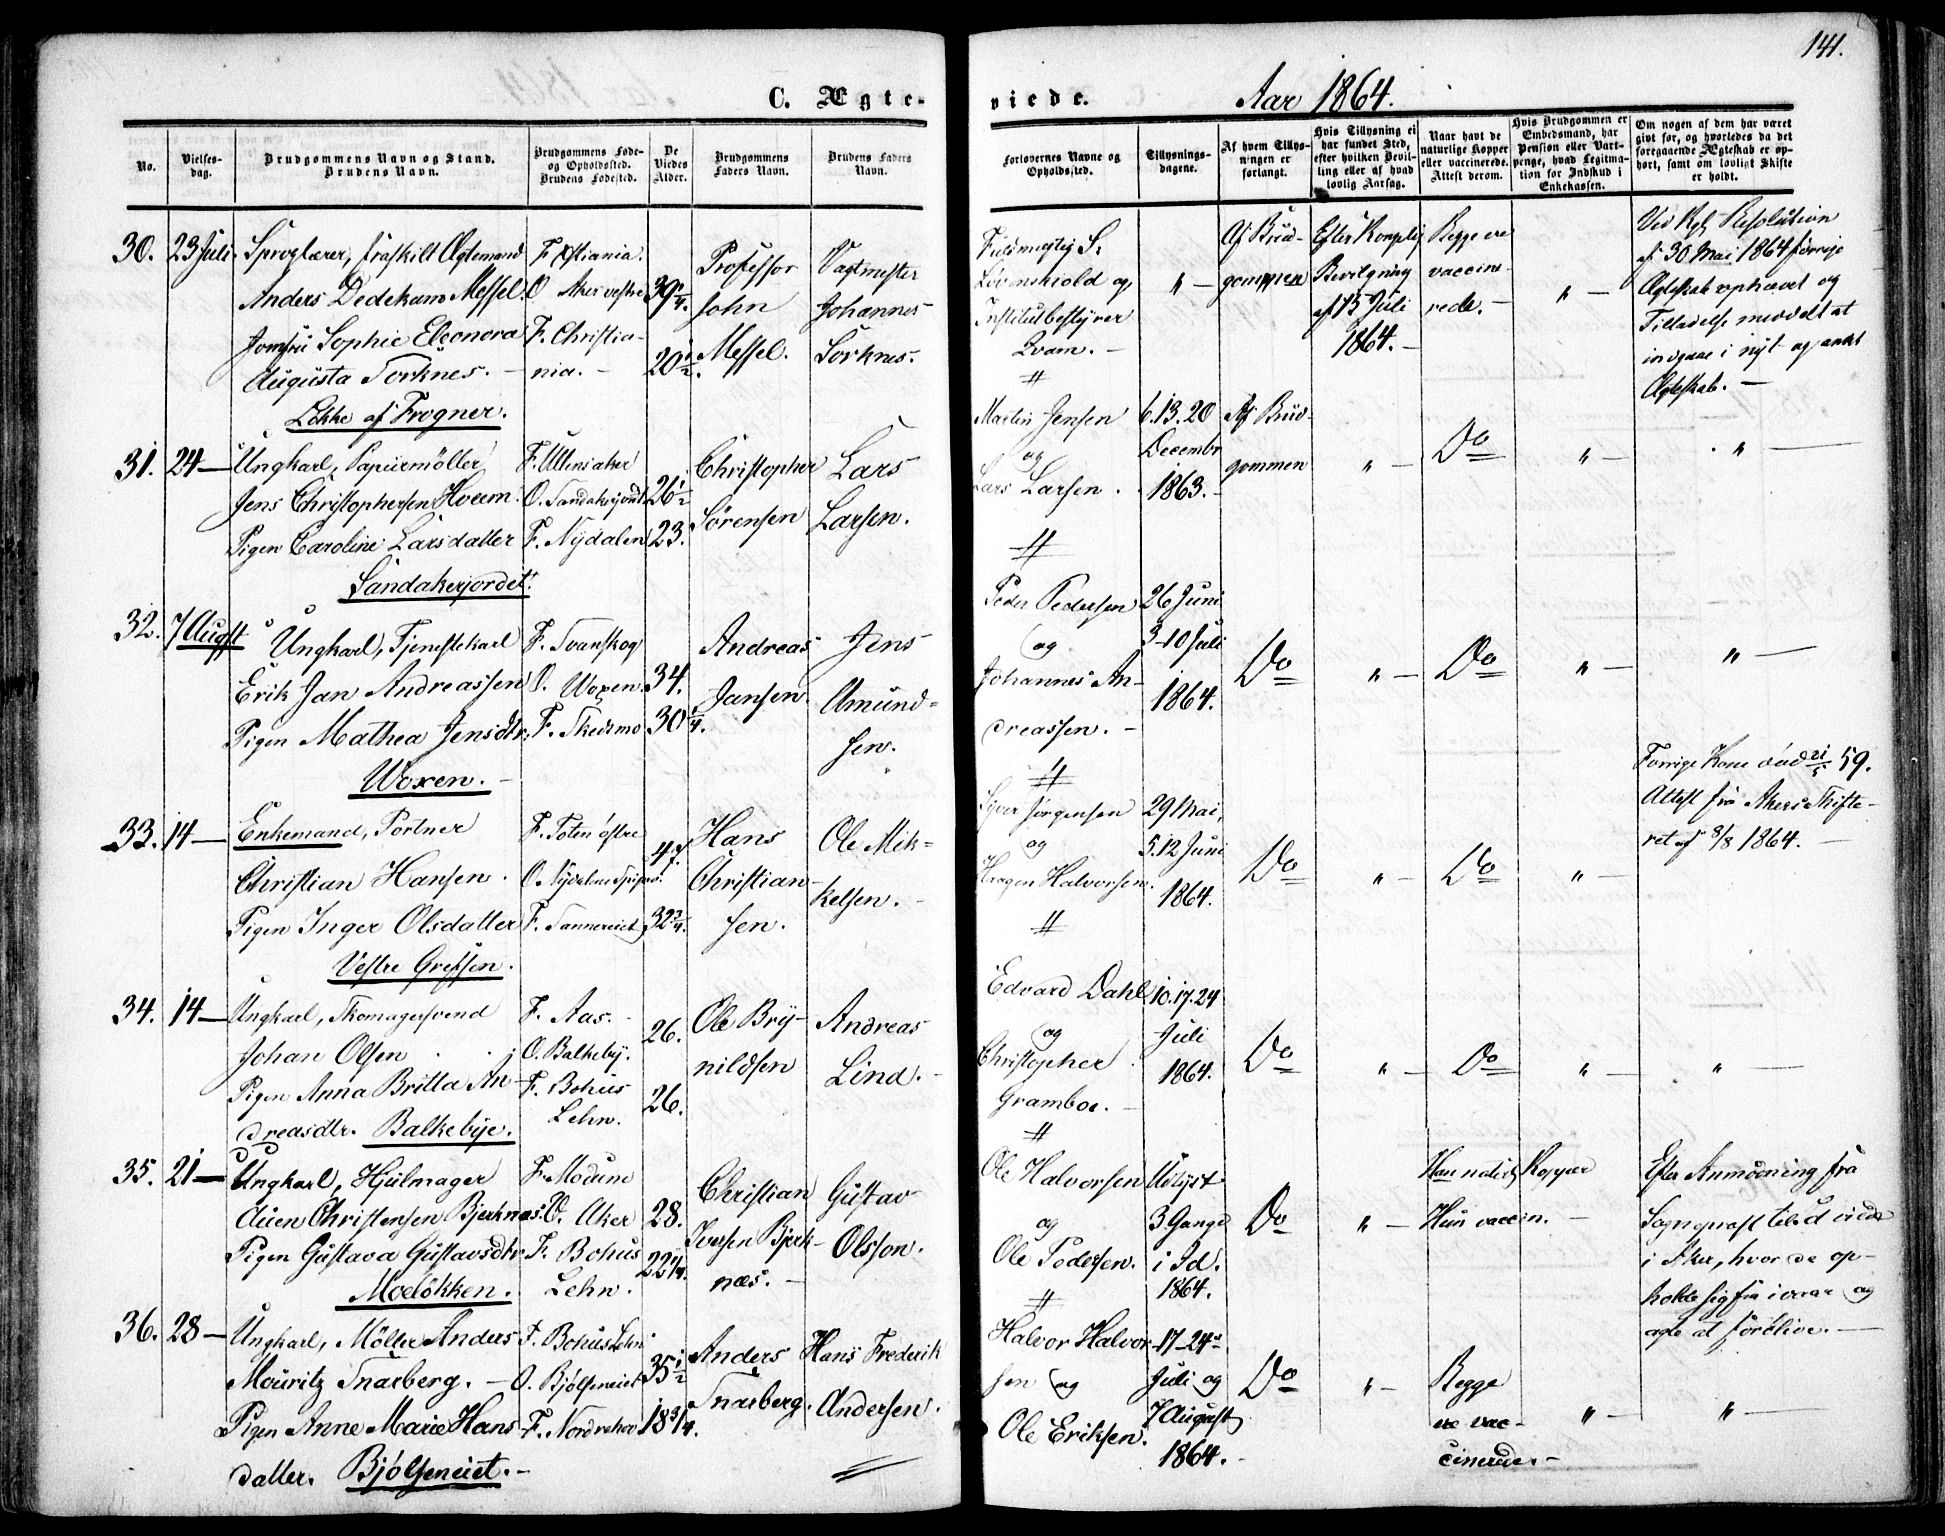 141.
C. Ægte-
viede.
Aar 1864.
No.
Vielses-
dag.
Brudgommens Navn og Stand.
Brudens Navn.
Brudgommens Føde-
og Opholdssted.
Brudens Fødested.
De
Viedes
Alder.
Brudgommens
Faders Navn.
Brudens Faders
Navn.
Forlovernes Navne og
Opholdssted.
Tillysnings-
dagene.
Af hvem Tillys-
ningen er
forlangt.
Hvis Tillysning ei
har fundet Sted,
efter hvilken Bevil-
ling eller af hvad
lovlig Aarsag.
Naar havt de
naturlige Kopper
eller vaccinerede.
Attest derom.
Hvis Brudgommen er
Embedsmand, har
Pension eller Vart-
penge, hvad Legitima-
tion for Indskud i
Enkekassen.
Om nogen af dem har været
givt før, og hvorledes da det
foregaaende Ægteskab er op-
hørt, samt om lovligt Skifte
er holdt.
30. 23 Juli.
Sproglærer, fraskilt Ægtemand
Anders Dedekam Messel.
Jomfru Sophie Eleonora
Augusta Sorknes. -
Løkke af Frogner.
F. Xstiania.
O. Aker vestre
F. Christia-
nia. -
39 1/4.
20 1/2.
Professor
John
Messel.
Vagtmester
Johannes
Sorknes.
Fuldmegtig S.
Løvenskiold og
Institutbestyrer
Qvam. -
" -
Af Brud-
gommen
Efter Kongelig
Bevilgning
af 15 Juli
1864. -
Begge ere
vaccine-
rede. -
" -
Ved Kgl. Resolution
af 30 Mai 1864 forrige
Ægteskab ophævet og
Tilladelse meddelt at
indgaae i nyt og andet
Ægteskab. -
31. 24 -
Ungkarl, Papiirmøller
Jens Christophersen Hvum.
Pigen Caroline Larsdatter
Sandakerjordet.
F. Ullensaker
O. Sandakerjordet
F. Nydalen
26 1/2
23.
Christopher
Sørensen
Lars
Larsen.
Martin Jensen
og
Lars Larsen.
6.13.20
Decembr
1863. -
Af Brud-
gommen
" -
Do
" -
" -
32. 7 Augst
Ungkarl, Tjenestekarl
Erik Jan Andreassen
Pigen Mathea Jensdtr.
Woxen. -
F. Svanskog
O. Woxen.
F. Skedsmo
34.
30 1/4.
Andreas
Jansen.
Jens
Amund-
sen.
Peder Pedersen
og
Johannes An-
dreassen. -
26 Juni
3-10 Juli
1864.
Do
" -
Do
" -
" -
33. 14 -
Enkemand, Portner
Christian Hansen.
Pigen Inger Olsdatter
Vestre Grefsen.
F. Toten østre
F. Sannereiet
47.
32 3/4.
Hans
Christian-
sen.
Ole Mik-
kelsen. -
Syver Jørgensen
og
Haagen Halvorsen.
29 Mai,
5.12 Juni
1864.
Do
" -
Do
" -
Forrige Kone død 21/5 59.
Attest fra Akers Skifte-
ret af 8/8 1864. -
34. 14 -
Ungkarl, Skomagersvend
Johan Olsen
Pigen Anna Britta An-
dreasdtr. Balkebye.
F. Aas. -
O. Balkeby.
F. Bohus
Lehn.
26.
26.
Ole Bry-
nildsen
Andreas
Lind. -
Edvard Dahl
og
Christopher
Gramboe. -
10.17.24
Juli
1864.
Do
" -
Do
" -
" -
35. 21 -
Ungkarl, Hjulmager
Auen Christensen Bjerknæs.
Pigen Gustava Gustavsdtr.
Moeløkken.
F. Modum
O. Aker
F. Bohus
Lehn.
28.
22 1/4.
Christian
Iversen Bjerk-
næs. -
Gustav
Olsson.
Ole Halvorsen
og
Ole Pedersen.
Udlyst
3 Gange
i Id.
1864.
Do
" -
Han naturl. Kopper
Hun vaccin. -
Efter Anmodning fra
Sognepræst tilsd viede
i Aker, hvor de op-
holde sig fra ivaar og
agte at forblive. -
36. 28 -
Ungkarl, Møller Anders
Mouritz Snarberg. -
Pigen Anne Marie Hans-
datter. Bjølseneiet. -
F. Bohus Lehn
O. Bjølseneiet
F. Norderhov
35 1/2
18 3/4.
Anders
Snarberg.
Hans Frederik
Andersen.
Halvor Halvor-
sen og
Ole Eriksen.
17-24de
Juli og
7 August
1864. -
Do
" -
Begge
ere vac-
cinerede. -
" -
" -